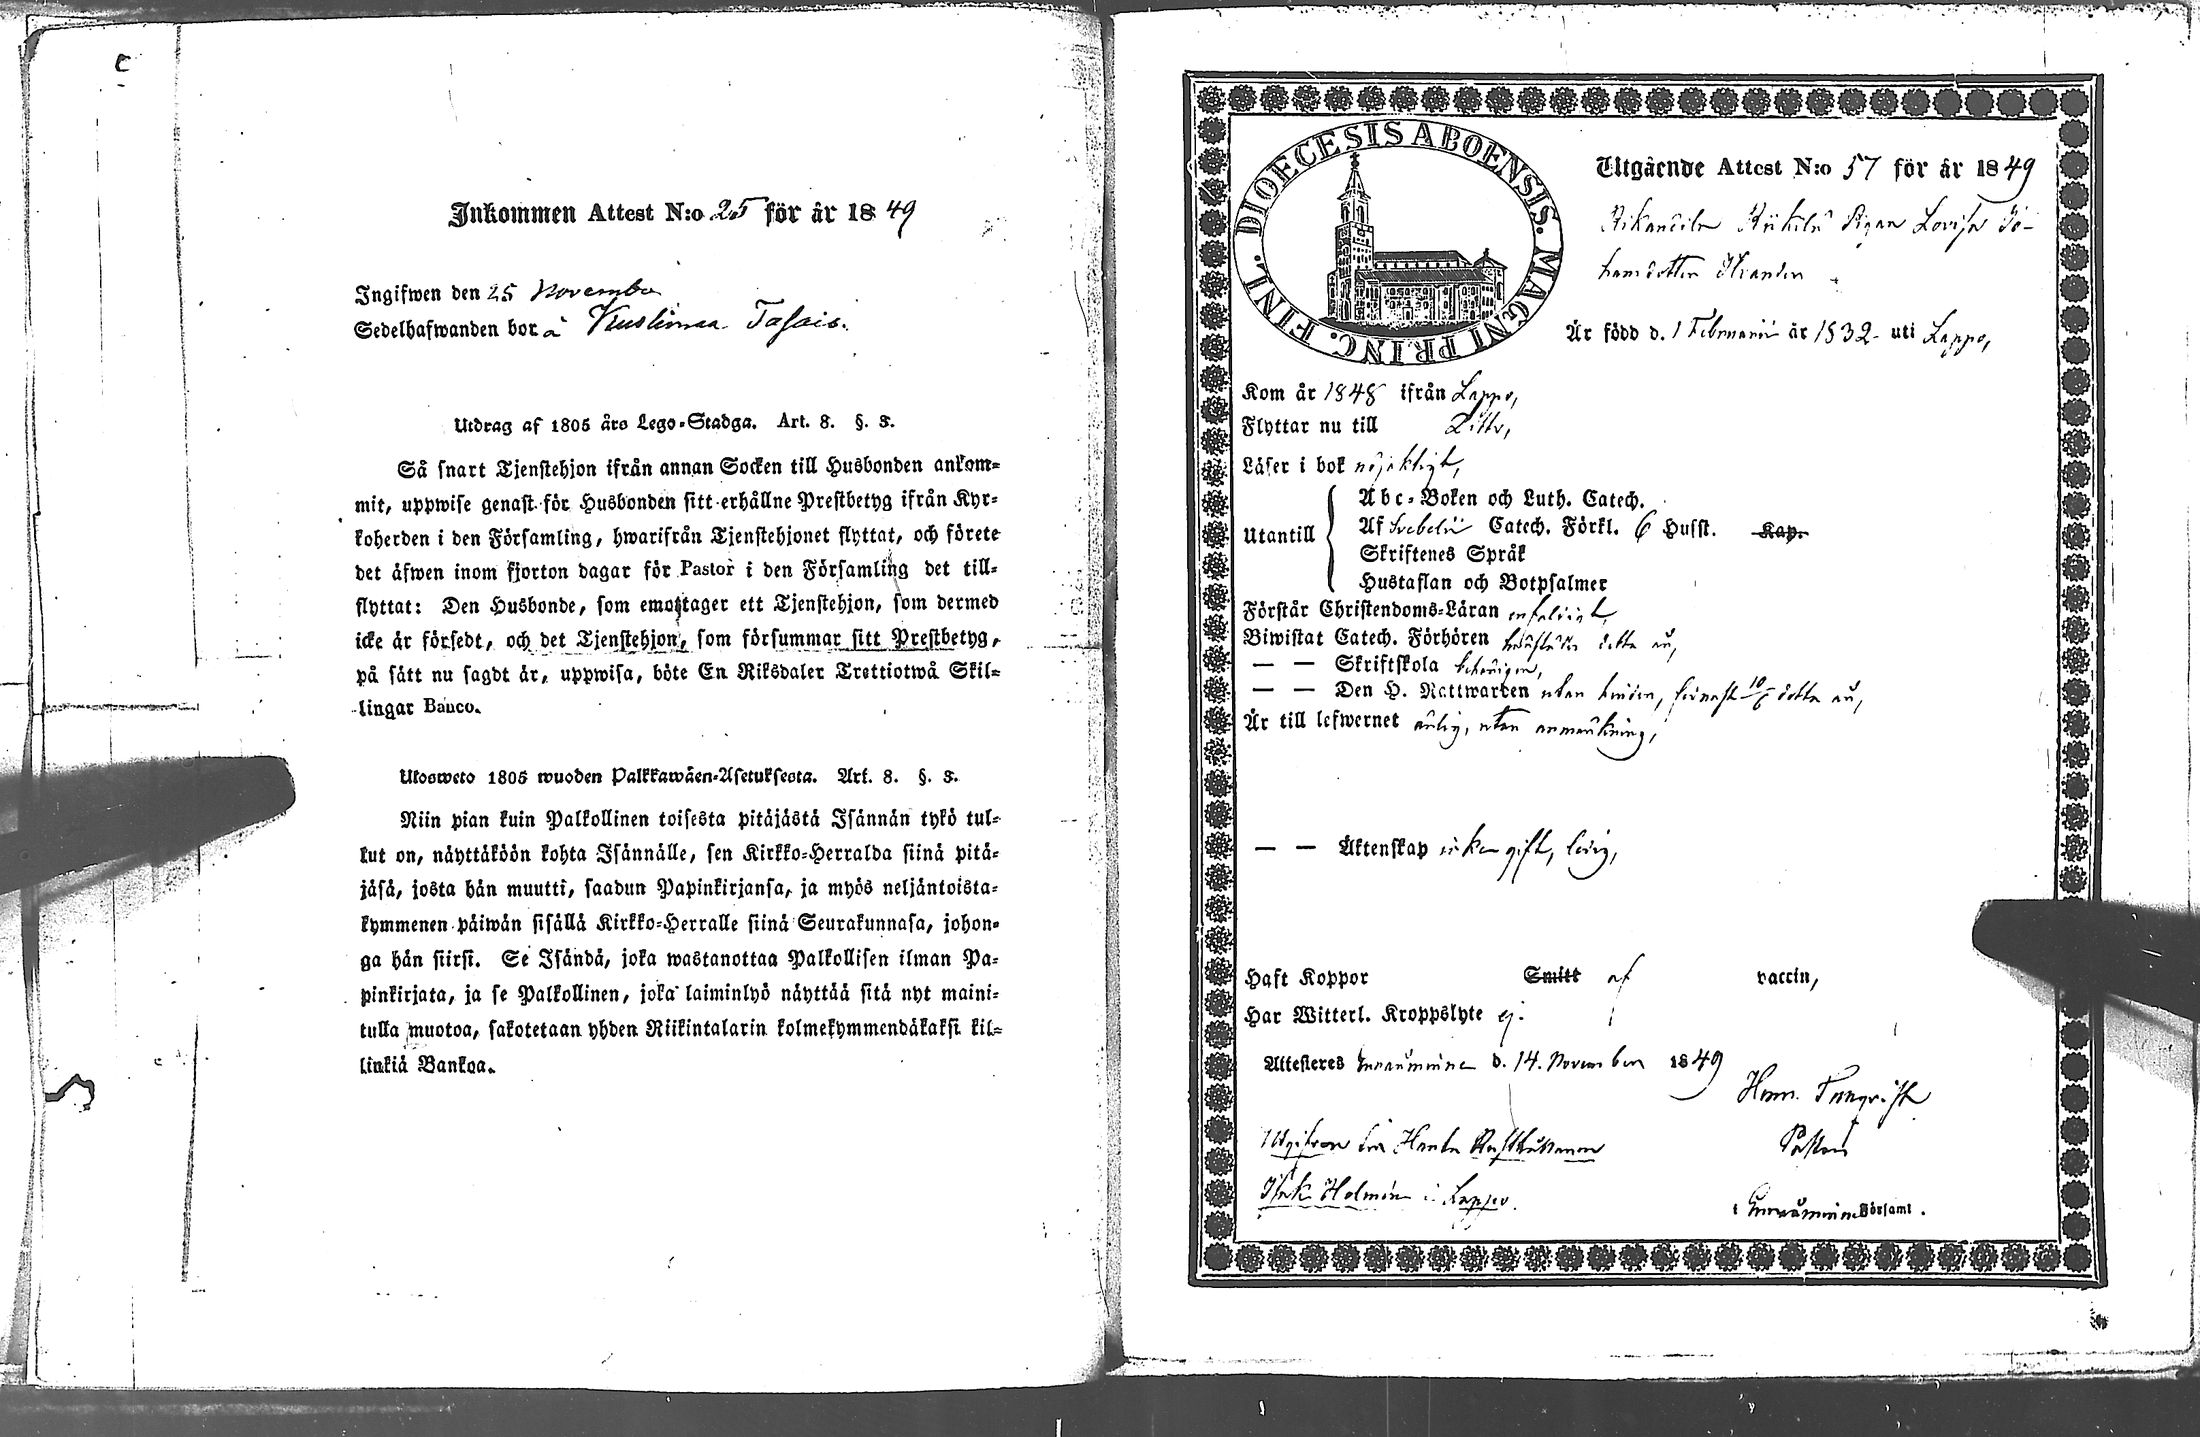 Inkommen Attest N:o 25 för år 1849
Ingifwen den 25 November
Sedelhafwanden bor å
Utdrag af 1805 års Lego-Stadga. Art. 8. §. 3.
Så snart Tjenstehjon ifrån annan Socken till Husbonden ankom-
mit, uppwise genast för Husbonden sitt erhållne Prestbetyg ifrån Kyr-
koherden i den Församling, hwarifrån Tjenstehjonet flyttat, och förete
det äfwen inom fjorton dagar för Pastor i den Församling det till-
flyttat: Den Husbonde, som emottager ett Tjenstehjon, som dermed
icke är försedt, och det Tjenstehjon, som försummar sitt Prestbetyg,
på sätt nu sagdt är, uppwisa, böte En Riksdaler Trettiotwå Skil-
lingar Banco.
Ulosweto 1805 wuoden Palkkawäen-Asetuksesta. Art. 8. §. 3.
Niin pian kuin Palkollinen toisesta pitäjästä Isännän tykö tul-
kut on, näyttäköön kohta Isännälle, sen Kirkko-Herralda siinä pitä-
jäsä, josta hän muutti, saadun Papinkirjansa, ja myös neljäntoista-
kymmenen päiwän sisällä Kirkko-Herralle siinä Seurakunnasa, johon-
ga hän siirsi. Se Isändä, joka wastanottaa Palkollisen ilman Pa-
pinkirjata, ja se Palkollinen, joka laiminlyö näyttää sitä nyt maini-
tulla muotoa, sakotetaan yhden Riikintalarin kolmekymmendäkaksi kil-
linkiä Bankoa.
DIOECESIS ABOENSIS. MAGNI PRINC. FINL.
Utgående Attest N:o 57 för år 1849
Pigan Lovisa Jo-
hansdotter
Är född d. 1 Februarii år 1832 uti Lappo,
Kom år 1848 ifrån Lappo,
Flyttar nu till Ditto,
Läser i bok nöjaktigt,
Utantill
Abc-Boken och Luth. Catech.
Af Svebelii Catech. Förkl. 6 Husst. Kap.
Skriftenes Språk
Hustaflan och Botpsalmer
Förstår Christendoms-Läran enfaldigt,
Biwistat Catech. Förhören detta år,
— — Skriftskola behörigen,
— — Den H. Nattwarden utan hinder, sednast 10/6 detta år,
Är till lefwernet ärlig, utan anmärkning,
— — Äktenskap icke gift, ledig,
Haft Koppor Smitt af vaccin,
Har Witterl. Kroppslyte ej.
Attesteres d. 14. November 1849
Henr.
Pastor
Utgifven
Holmén i Lappo.
i Församl.